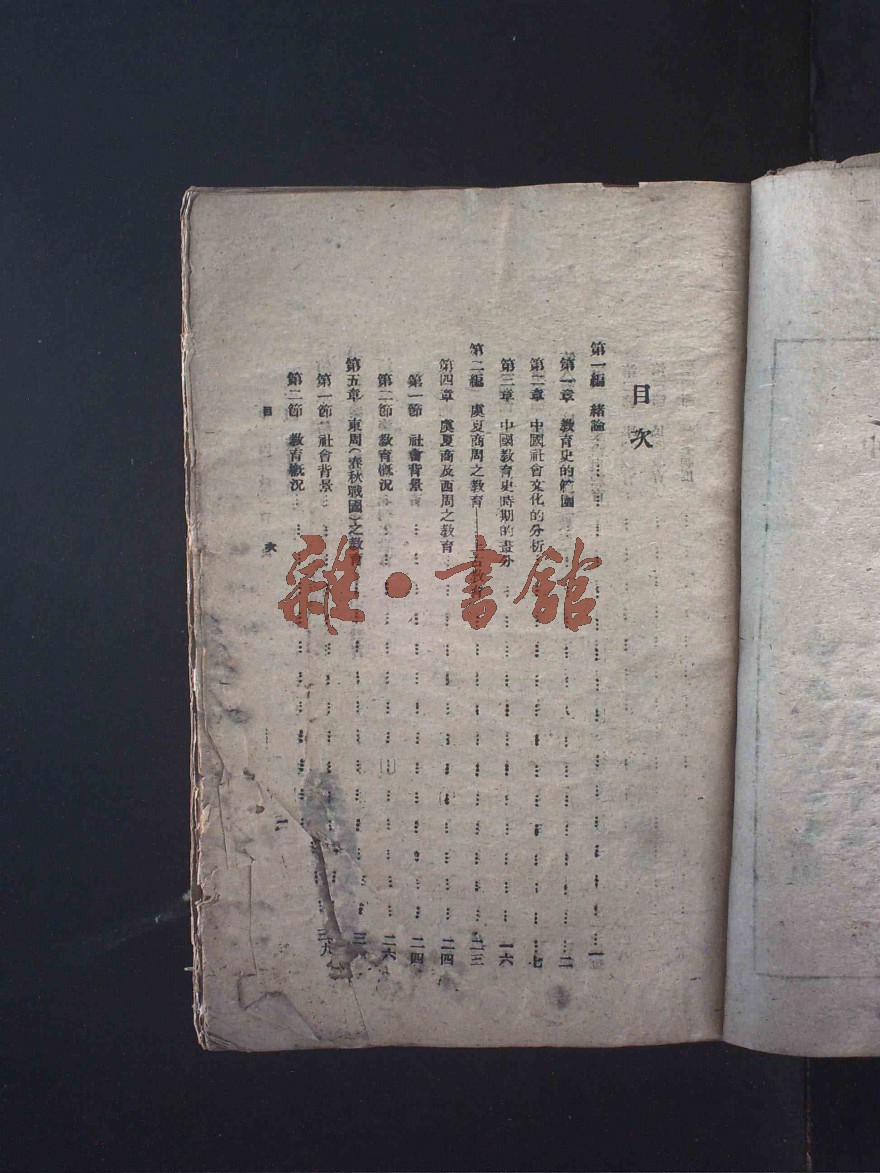 目次
第一編 緒論 一
第一章 教育史的範圍 二
第二章 中國社會文化的分析 七
第三章 中國教育史時期的畫分 一六
第二編 虞夏商周之教育——上古教育 二三
第四章 虞夏商及西周之教育 二四
第一節 社會背景 二四
第二節 教育概況 二六
第五章 東周(春秋戰國)之教育
第一節 社會背景
第二節 教育概況
三九
目次
一
雜·書館